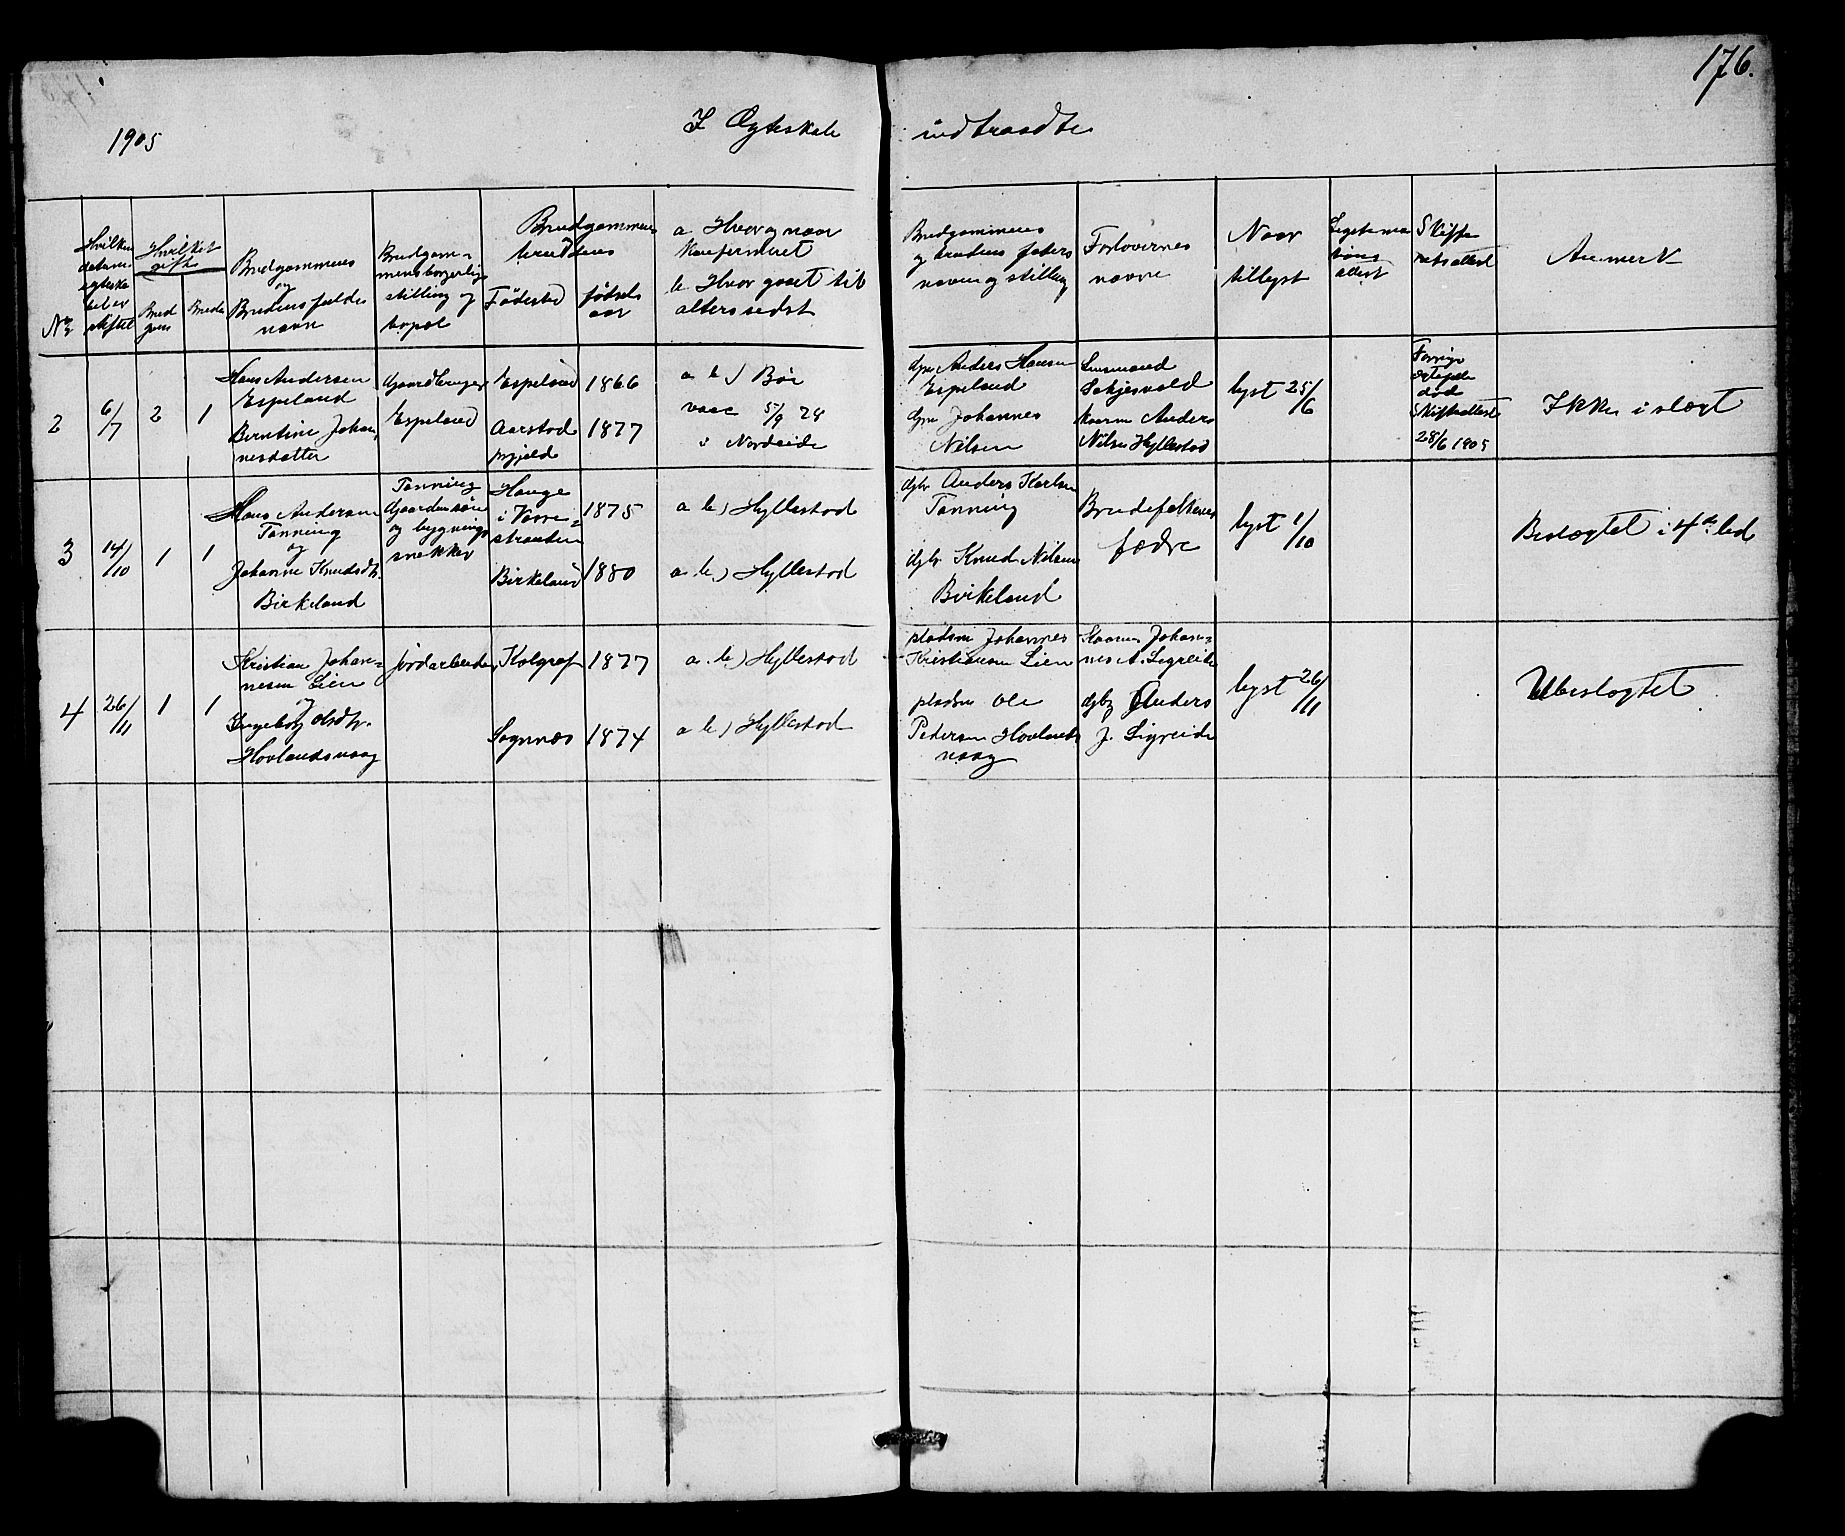 176.
1905
I Ægteskab
indtraadte
No
Hvilken
dato
egteska
bet er
stiftet
Hvilket
gifte
Brud
gom
Brud
Brudgommens
og
Brudens fulde
navn
Brudgom-
mens borgerlig
stilling og
bopæl
Brudgommens
brudens
Fødested
fødsels
aar
a Hvor og naar
Konfirmeret
b Hvor gaaet til
alters sidst
Brudgommens
og brudens faders
navn og stilling
Forlovernes
navne
Naar
tillyst
attest
Skifte
retsattest
Anmerk
2
6/7
2
1
Hans Andersen
Espeland
Berntine Johan
nesdatter
Gaardbruger
Espeland
Espeland
1866
Aarstad
1877
a b) Bø
5/9 28
i Nordeide
gbr Anders Hansen
Espeland
Johannes
Nilsen
Lensmand
Anders
Nilsen Hyllestad
lyst 25/6
Forrige
død
Skifteattest
28/6 1905
Ikke i slægt
3
14/10
1
1
Hans Andersen
Tønning
og
Johanne Knudsdtr.
Birkeland
Tønning
Gaardmandssøn
og bygnings
snekker
Hauge
1875
Birkeland
1880
a b) Hyllestad
a b) Hyllestad
gbr Anders Karlsen
Tønning
gbr Knud Nilsen
Birkeland
Brudefolkenes
fædre
lyst 1/10
Beslægtet i 4de led
4
26/11
1
1
Kristian Johan=
nesen Lien
og
Ingeborg Olsdtr.
Hovlandsvaag
jordarbeider
Kolgrof
1877
Sognnes
1874
a. b) Hyllestad
a b) Hyllestad
pladsm Johannes
Kristiansen Lien
pladsm Ole
Pedersen Hovlands
vaag
Johan=
nes A. Sigreide
gbr Anders
J. Sigreide
lyst 26/11
Ubeslægtet